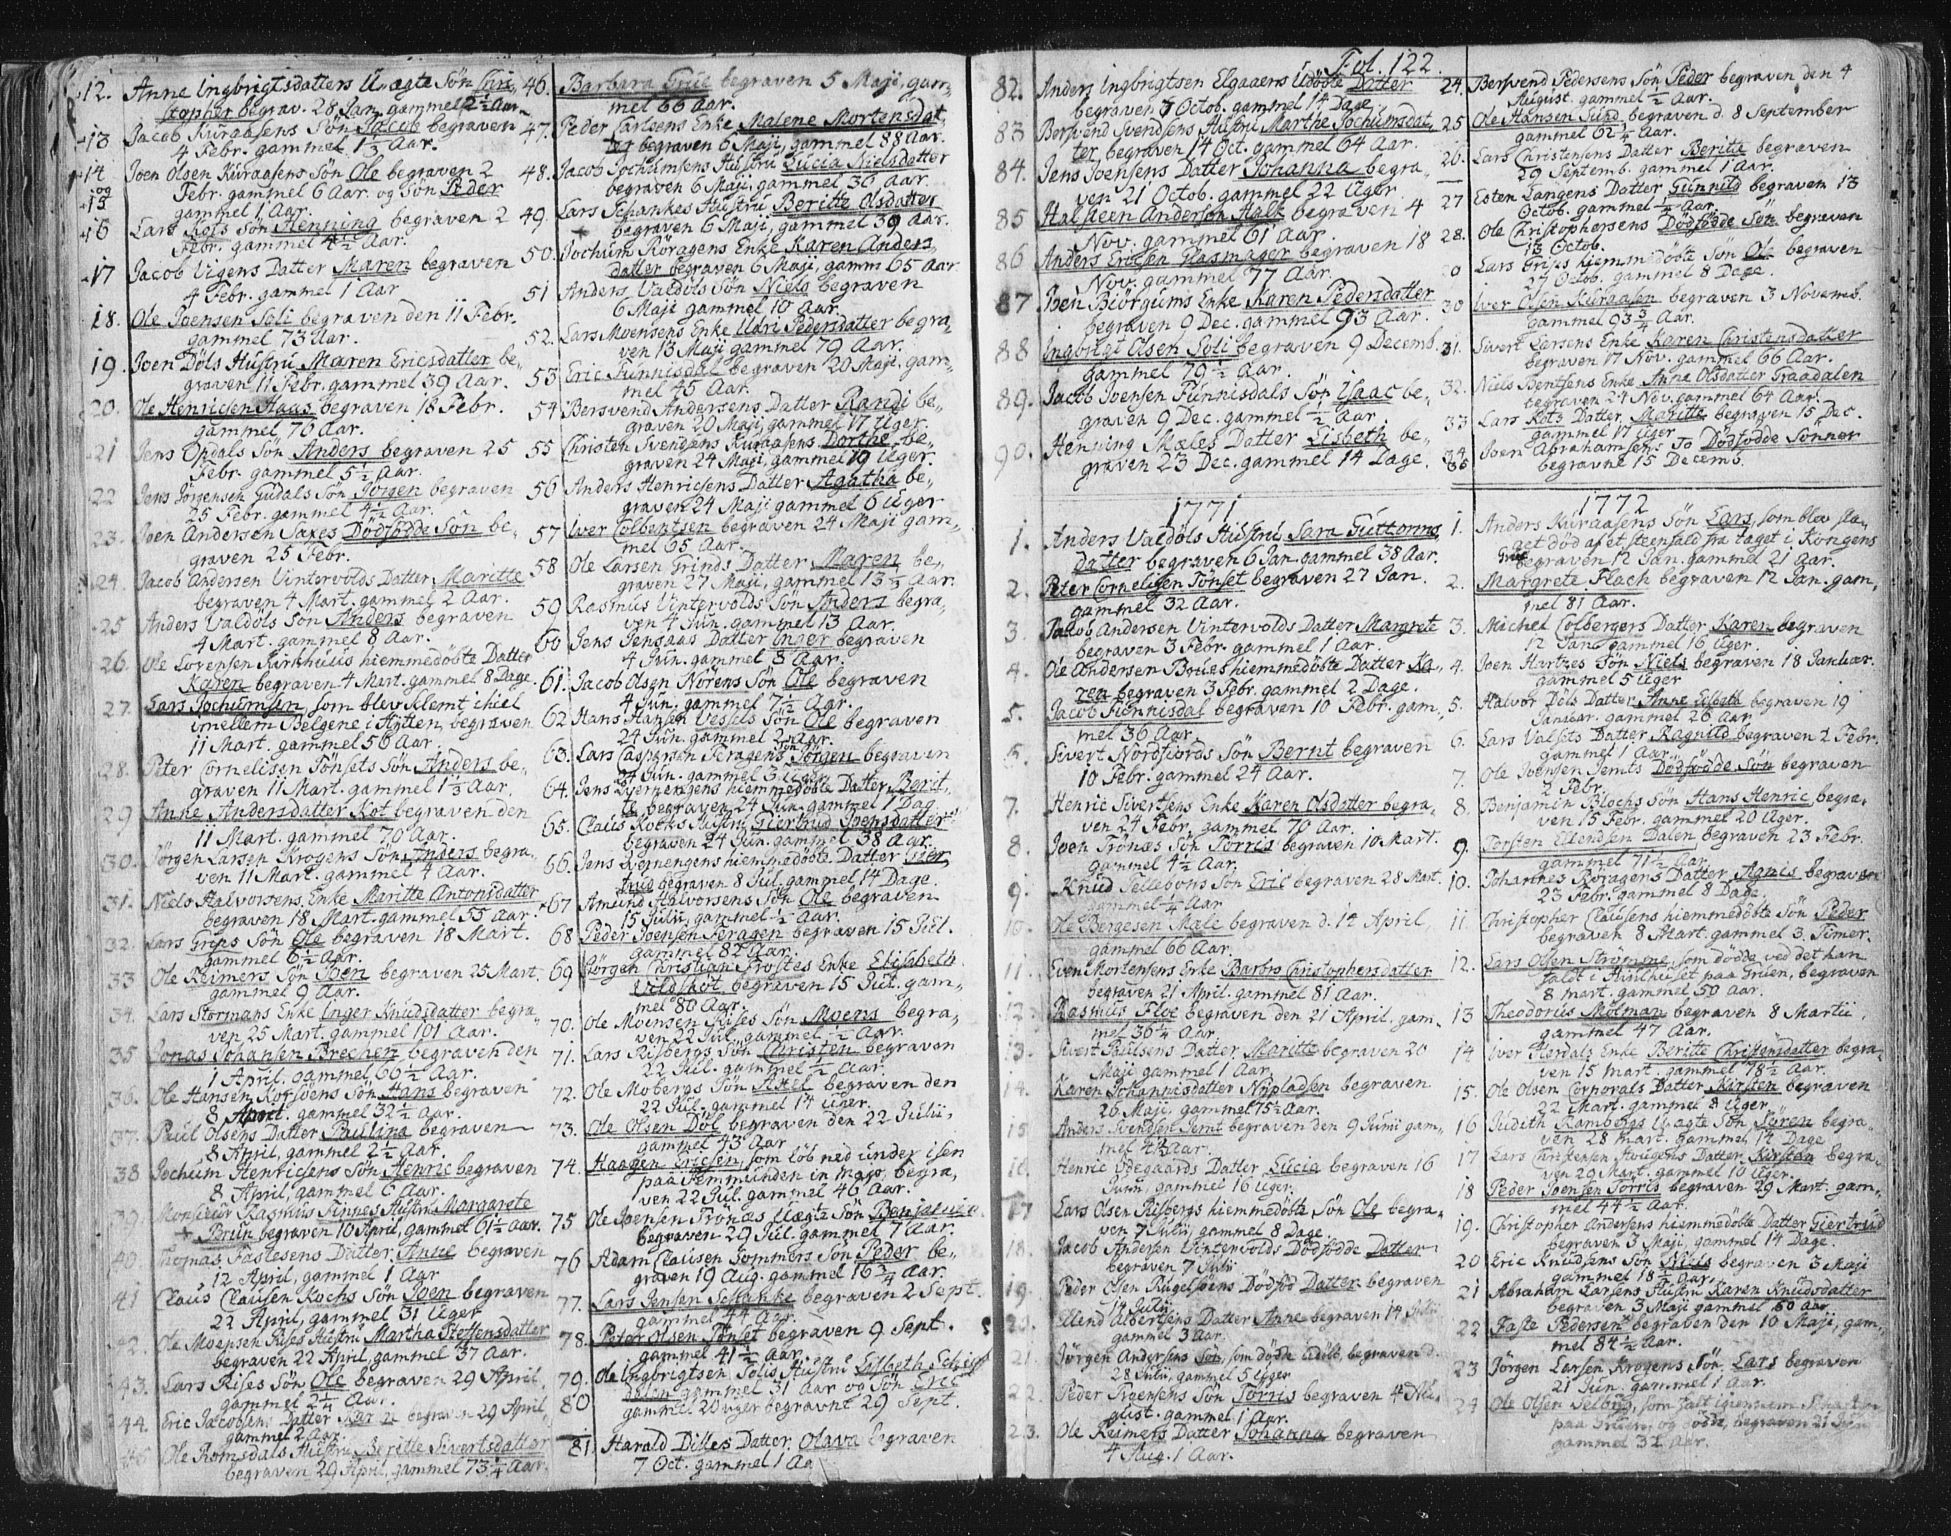 12. Anne Ingbrigtsdatters Uægte Sön Chri-
stopher begrav. 28 Jan. gammel 2 1/2 Aar
13 Jacob Kuraasens Sön Jacob begraven
4 Febr. gammel 1 1/3 Aar.
14 Joen Olsen Kuraasens Sön Ole begraven 2
og 15 Febr. gammel 6 Aar. og Sön Peder
gammel 1 Aar.
16 Lars Kots Sön Henning begraven 2
Febr. gammel 4 1/2 Aar.
17 Jacob Vigens Datter Maren begraven
4 Febr. gammel 1 Aar
18. Ole Joensen Soli begraven den 11 Febr.
gammel 73 Aar.
19. Joen Döls Hustru Maren Ericsdatter be-
graven 11 Febr. gammel 39 Aar.
20. Ole Henricsen Haas begraven 18 Febr.
gammel 70 Aar.
21 Jens Opdals Sön Anders begraven 25
Febr. gammel 5 1/2 Aar.
22 Jens Jörgensen Gudals Sön Jörgen begraven
25 Febr. gammel 4 1/2 Aar.
23. Joen Andersen Saxes Dödfödde Sön be-
graven 25 Febr.
24. Jacob Andersen Vintervolds Datter Maritte
begraven 4 Mart. gammel 2 Aar.
25 Anders Valdöls Sön Anders begraven
4 Mart. gammel 8 Aar.
26. Ole Lorensen Kirkhuus hiemmedöbte Datter
Karen begraven 4 Mart. gammel 8 Dage.
27. Lars Jochumsen, som blev klemt ihiel
imellem Belgene i Hytten, begraven
11 Mart. gammel 50 Aar.
28. Peter Cornelisen Tönsets Sön Anders be-
graven 11 Mart. gammel 1 1/3 Aar.
29 Anne Andersdatter Kot begraven den
11 Mart. gammel 70 Aar.
30. Jörgen Larsen Krogens Sön Anders begra-
ven 11 Mart. gammel 4 Aar.
31. Niels Halvorsens Enke Maritte Antonisdatter
begraven 18 Mart. gammel 55 Aar.
32. Lars Grips Sön Ole begraven 18 Mart.
gammel 6 1/2 Aar.
33 Ole Reimers Sön Joen begraven 25 Mart.
gammel 9 Aar.
34. Lars Stormans Enke Inger Knudsdatter begra-
ven 25 Mart. gammel 101 Aar.
35 Jonas Johansen Brechen begraven den
1 April. gammel 60 1/2 Aar.
36. Ole Hansen Korsöens Sön Hans begraven
8 April. gammel 32 1/2 Aar.
37. Paul Olsens Datter Paulina begraven
8 April, gammel 2 1/2 Aar.
38 Jochum Henricsens Sön Henric begraven
8 April, gammel 6 Aar.
39. Monsieur Rasmus Finnes Hustru Margarete
Bruun begraven 10 April, gammel 61 1/2 Aar.
40. Thomas Fastesens Datter Anne begraven
12 April, gammel 1 Aar
41 Claus Clausen Kochs Sön Joen begraven
22 April, gammel 31 Uger
42. Ole Moensen Rises Hustru Martha Steffensdatter
begraven 22 April, gammel 37 Aar.
43. Lars Rises Sön Ole begraven 29 April
gammel 2 1/4 Aar.
44. Eric Jacobsens Datter Karen begraven 29 April,
gammel 2 Aar.
45 Ole Romsdals Hustru Beritte Sivertsdatter
begraven 29 April, gammel 73 1/4 Aar.
46. Barbara Grue begraven 5 Maji, gam-
mel 66 Aar.
47. Peder Carlsens Enke Malene Mortensdat-
ter begraven 6 Maji, gammel 88 Aar.
48. Jacob Jochumsens Hustru Lucia Nielsdatter
begraven 6 Maji, gammel 36 Aar.
49. Lars Schankes Hustru Beritte Olsdatter
begraven 6 Maji, gammel 39 Aar.
50. Jochum Röragens Enke Karen Anders-
datter begraven 6 Maji, gamm. 65 Aar.
51 Anders Valdöls Sön Niels begraven
6 Maji gammel 10 Aar.
52. Lars Moensens Enke Udri Pedersdatter begra-
ven 13 Maji gammel 79 Aar.
53. Eric Funnisdal begraven 20 Maji, gam-
mel 45 Aar.
54. Bersvend Andersens Datter Randi be-
graven 20 Maji, gammel 17 Uger.
55 Christen Svendsens Kuraasens Dorthe be-
graven 24 Maji, gammel 19 Uger.
56 Anders Henricsens Datter Agatha be-
graven 24 Maji gammel 6 Uger
57 Iver Colbentsen begraven 24 Maji gam-
mel 65 Aar.
58 Ole Larsen Grinds Datter Maren be-
graven 27 Maji, gammel 13 1/2 Aar.
59 Rasmus Vintervolds Sön Anders begra-
ven 4 Jun. gammel 13 Aar.
60 Jens Jensaas Datter Inger begraven
4 Jun. gammel 8 Aar.
61. Jacob Olsen Norens Sön Ole begraven
4 Jun. gammel 7 1/2 Aar.
62 Hans Hansen Vessels Sön Ole begraven
24 Jun. gammel 2 Aar.
63. Lars Caspersen Feragens Sön Jörgen begraven
24 Jun. gammel 3 Uger
64. Jens Evernengens hiemmedöbte Datter Berit-
te begraven 24 Jun. gammel 1 Dag.
65. Claus Kocks Hustru Giertrud Joensdatter
begraven 24 Jun. gammel 38 Aar.
66. Jens Evernengens hiemmedöbte Datter Gier-
trud begraven 8 Jul. gammel 14 Dage.
67 Amund Halvorsens Sön Ole begraven
15 Julii, gammel 1/2 Aar.
68 Peder Joensen Feragen begraven 15 Jul.
gammel 82 Aar.
69 Jörgen Christian Frostes Enke Elisabeth
Vildskot begraven 15 Jul. gam-
mel 80 Aar.
70. Ole Moensen Rises Sön Moens begra-
ven 22 Jul. gammel 1/2 Aar.
71. Lars Risbergs Sön Christen begraven
22 Jul. gammel 1/2 Aar.
72. Ole Mobergs Sön Axel begraven den
22 Jul. gammel 14 Uger.
73. Ole Olsen Döl begraven den 22 Julii,
gammel 43 Aar
74. Haagen Ericsen, som löb ned under isen
paa Femmunden in majo, begra-
ven 22 Jul. gammel 46 Aar.
75 Ole Joensen Trönæs Uægte Sön Benjamin
begraven 29 Jul. gammel 7 Aar.
76 Adam Clausen Sommers Sön Peder be-
graven 19 Aug. gammel 16 3/4 Aar.
77. Lars Jensen Schanke begraven 2 Sept.
gammel 44 Aar.
78. Peter Olsen Tönset begraven 9 Sept.
gammel 41 1/2 Aar.
79. Ole Ingbrigtsen Solis Hustru Lisbeth
80 dalen gammel 31 Aar og Sön Eric
gammel 20 uger begravne 29 Sept.
81 Harald Dilles Datter Olava begraven
7 Oct. gammel 1 Aa
Fol. 122.
82. Anders Ingbrigtsen Elgaaens Udöbte Datter
begraven 7 Octob. gammel 14 Dage
83 Bersvend Svendsens Hustru Marthe Jochumsdat-
ter begraven 14 Oct. gammel 64 Aar.
84. Jens Joensens Datter Johanna begra-
ven 21 Octob. gammel 22 Uger
85 Halsteen Andersen Halk begraven 4
Nov. gammel 61 Aar.
86 Anders Ericsen Glasmager begraven 18
Nov. gammel 77 Aar.
87 Joen Biörgums Enke Karen Pedersdatter
begraven 9 Dec. gammel 93 Aar.
88 Ingbrigt Olsen Soli begraven 9 Decemb.
gammel 79 1/2 Aar.
89. Jacob Joensen Funnisdals Sön Isaac be-
graven 9 Dec. gammel 1/2 Aar
90. Henning Mæles Datter Lisbeth be-
graven 23 Dec. gammel 14 Dage.
1771
1. Anders Valdöls Hustru Sara Guttorms-
datter begraven 6 Jan. gammel 38 Aar.
2. Peter Cornelisen Tönset begraven 27 Jan.
gammel 32 Aar.
3. Jacob Andersen Vintervolds Datter Margrete
begraven 3 Febr. gammel 1 Aar.
4. Ole Andersen Boues hiemmedöbte Datter Ka-
ren begraven 3 Febr. gammel 2 Dage.
5. Jacob Funnisdal begraven 10 Febr. gam-
mel 36 Aar.
6. Sivert Nordfiords Sön Bernt begraven
10 Febr. gammel 24 Aar.
7. Henric Sivertsens Enke Karen Olsdatter begra-
ven 24 Febr. gammel 70 Aar.
8. Joen Trönæs Sön Torris begraven 10 Mart.
gammel 4 1/2 Aar.
9. Knud Tellebons Sön Eric begraven 28 Mart.
gammel 1/4 Aar
10. Ole Bergesen Male begraven d. 14 April
gammel 66 Aar.
11. Even Mortensens Enke Barbro Christophersdatter
begraven 21 April. gammel 81 Aar.
12. Rasmus Floe begraven den 21 April, gam-
mel 36 1/4 Aar.
13. Sivert Paulsens Datter Maritte begraven 20
Maji gammel 1 Aar.
14. Karen Johannisdatter Nyplassen begraven
26 Maji, gammel 75 1/2 Aar.
15 Anders Svendsen Jemt begraven den 9 Junii gam-
mel 42 Aar.
16 Henric Ödegaards Datter Lucia begraven 16
Junii, gammel 16 Uger.
17 Lars Olsen Risbergs hiemmedöbte Sön Ole begra-
ven 7 Julii, gammel 8 Dage.
18. Jacob Andersen Vintervolds Dödfödde Datter
begraven 7 Julii
19. Peder Olsen Rugelsöens Dödföd Datter begraven
14 Julii
20. Ellend Albertsens Datter Anne begraven 14 Julii
gammel 3 Aar.
21. Jörgen Andersens Sön, som döde udöbt, begraven d.
28 Julii, gammel 5 Uger
22. Peder Sigensens Sön Torris begraven 4 Au-
gust. gammel 1 Aar.
23. Ole Reimers Datter Johanna begraven
4 Aug. 1 Aar.
24. Bersvend Pedersens Sön Peder begraven den 4
August. gammel 1/2 Aar.
25 Ole Hansen Sund begraven d. 8 September
gammel 62 1/4 Aar.
26. Lars Christensens Datter Beritte begraven
29 Septemb. gammel 1 Aar.
27 Esten Tangens Datter Gunnild begraven 13
Octob. gammel 1/4 Aar.
28. Ole Christophersens Dödfödde Sön begraven
13 Octob.
Lars Grises hiemmedöbte Sön Ole begraven
27 Octob. gammel 8 Dage.
30 Iver Olsen Kuraasen begraven 3 Novemb.
gammel 93 3/4 Aar.
31. Sivert Larsens Enke Karen Christensdatter
begraven 17 Nov. gammel 66 Aar.
32. Niels Bentsens Enke Anne Olsdatter Graadalen
begraven 24 Nov. gammel 64 Aar.
33 Lars Kots Datter Maritte begraven 15 Dec.
gammel 17 Uger
34. 35 Joen Abrahamsens To Dödfödde Sönner
begravne 15 Decemb.
1772
1. Anders Kuraasens Sön Lars, som blev sla-
get död af et steenfald fra taget i Kongens
Grue begraven 12 Jan. gammel 21 Aar.
2. Margrete Flach begraven 12 Jan. gam-
mel 81 Aar.
3. Michel Colbergers Datter Karen begraven
12 Jan. gammel 16 Uger.
4. Joen Hartzes Sön Niels begraven 18 Januar.
gammel 5 Uger
5. Halvor Döls Datter Anne Lisbeth begraven 19
Januar. gammel 26 Aar
6. Lars Valsets Datter Ragnild begraven 2 Febr.
gammel 1 Aar.
7. Ole Joensen Jemts Dödfödde Sön begraven
2 Febr.
8. Benjamin Blochs Sön Hans Henric begra-
ven 15 Febr. gammel 20 Uger.
9. Torsten Ellendsen Dalen begraven 23 Febr.
gammel 71 1/2 Aar.
10. Johannes Röragens Datter Agnis begraven
23 Febr. gammel 8 Dage.
11. Christopher Clausens hiemmedöbte Sön Peder
begraven 8 Mart. gammel 3 Timer.
12. Lars Olsen Strömme, som dödde ved det han
faldt i Hiulhuset paa Gruen, begraven
8 mart. gammel 50 Aar.
13 Theodorus Molman begraven 8 Martii
gammel 47 Aar.
14 Iver Herdals Enke Beritte Christensdatter begra-
ven 15 mart. gammel 78 1/2 Aar.
15. Ole Olsen Corporals Datter Kirsten begraven
22 Mart. gammel 8 Uger
16 Judith Rambergs Uægte Sön Sören begra-
ven 28 mart. gammel 14 Dage
17 Lars Christensen Haugens Datter Kirsten begra-
ven 29 Mart. gammel 10 Uger.
18 Peder Joensen Törris begraven 29 Mart. gam-
mel 44 1/2 Aar.
19. Christopher Andersens hiemmedöbte Datter Giertrud
begraven 3 Maji, gammel 14 Dage.
20 Eric Knudsens Sön begraven 3 Maji
gammel 18 Aar.
21 Abraham Larsens Hustru Karen Knudsdatter
begraven 3 Maji gammel 60 Aar
22 Faste Pedersen begraven den 10 Maji, gam-
mel 84 1/2 Aar.
23 Jörgen Larsen Krogens Sön Lars begraven
21 Jun. gammel 1 Aar.
24 Ole Olsen Selboe, som falt igiennem
paa Gruen, og döde, begraven 21 Jun
gammel 32 Aar.